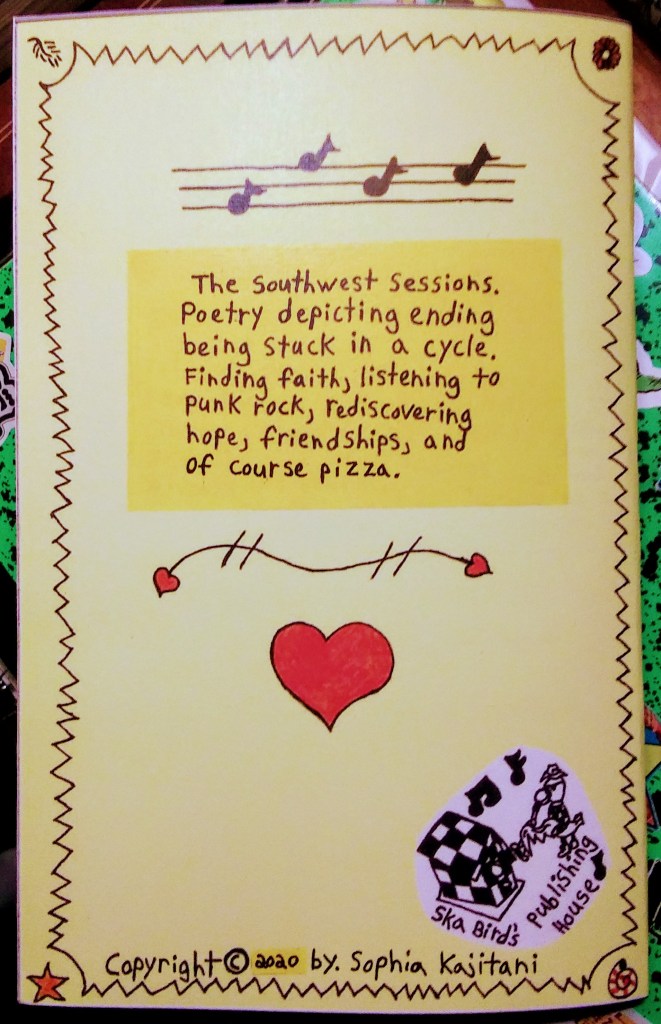 The Southwest Sessions.
Poetry depicting ending
being stuck in a cycle.
Finding faith, listening to
punk rock, rediscovering
hope, friendships, and
of course pizza.
Ska Bird's
Publishing
House
Copyright © 2020 by. Sophia Kajitani